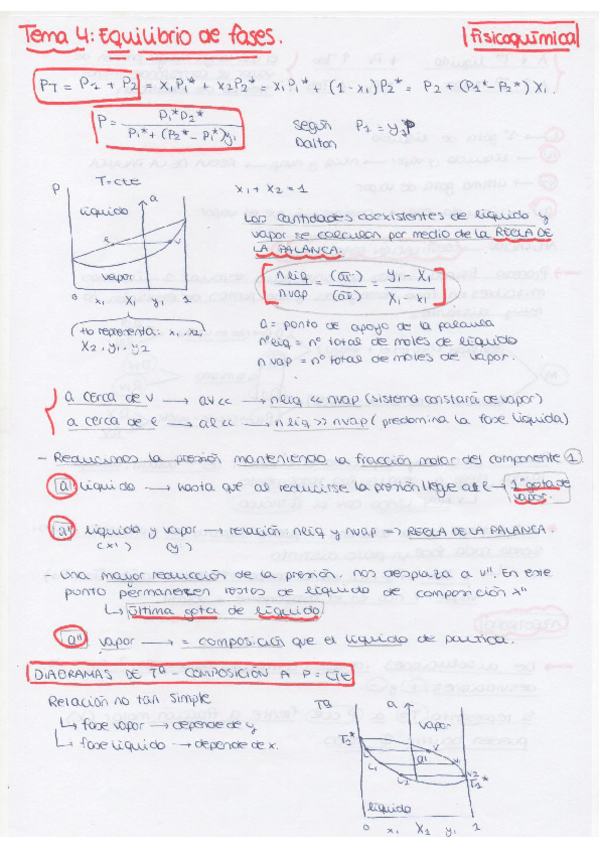 Tema 4: Equilibrio de fases.
Fisicoquímica
PT = P1 + P2 = x1P1* + x2P2* = x1P1* + (1-x1)P2* = P2 + (P1*-P2*) x1.
P = P1*P2* / P1*+(P2*-P1*)y1
según Dalton P1 = y1P
P T=cte
a
líquido
x1 + x2 = 1
vapor
0 x1 X1 y1 1
Las cantidades coexistentes de líquido y
vapor se calculan por medio de la REGLA DE
LA PALANCA.
n liq / n vap = (av) / (al) = y1 - X1 / X1 - x1
no representa: x1, x2,
X2, y1, y2
a = punto de apoyo de la palanca
nº liq = nº total de moles de líquido
n vap = nº total de moles de vapor.
a cerca de v → av << → nliq << nvap (sistema constará de vapor)
a cerca de l → al << → nliq >> nvap (predomina la fase líquida)
- Reducimos la presión manteniendo la fracción molar del componente 1.
a líquido → hasta que al reducirse la presión llege al l → 1ª gota de
vapor.
a' líquido y vapor → relación nliq y nvap => REGLA DE LA PALANCA.
(x1) (y1)
- Una mayor reducción de la presión, nos desplaza a v". En este
punto permanecen restos de líquido de composición x"
↳ última gota de líquido
a" vapor → = composición que el líquido de partida.
DIAGRAMAS DE Tª - COMPOSICIÓN A P = CTE
Relación no tan simple
↳ fase vapor → depende de y
↳ fase líquido → depende de x.
Tª a
vapor
T2*
v
L1 a1
L2 v2
T1*
líquido
0 x1 X1 y1 1